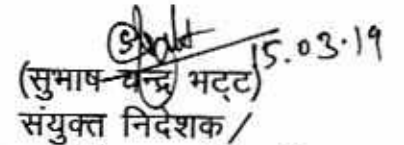 15.03.19
(सुभाष चन्द्र भट्ट)
संयुक्त निदेशक /